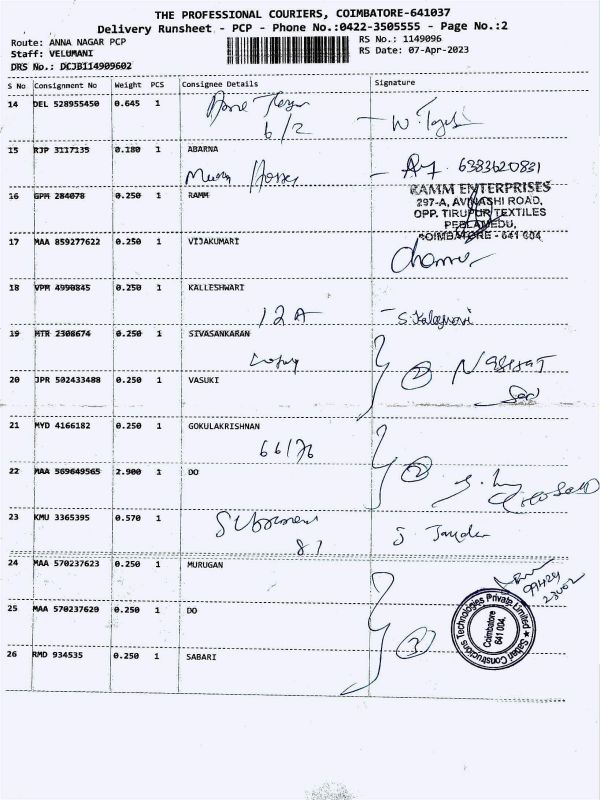 THE PROFESSIONAL COURIERS, COIMBATORE-641037
Delivery Runsheet - PCP - Phone No.:0422-3505555 - Page No.:2
Route: ANNA NAGAR PCP
RS No.: 1149096
Staff: VELUMANI
RS Date: 07-Apr-2023
DRS No.: DCJB114909602
S No Consignment No Weight PCS Consignee Details Signature
14 DEL 528955450 0.645 1
6/2
15 RJP 3117135 0.180 1 ABARNA
6383620831
16 GPM 284078 0.250 1 RAMM
RAMM ENTERPRISES
297-A, AVINASHI ROAD,
OPP. TIRUPUR TEXTILES
PEELAMEDU,
COIMBATORE - 641 004
17 MAA 859277622 0.250 1 VIJAKUMARI
18 VPM 4990845 0.250 1 KALLESHWARI
12A
19 MTR 2308674 0.250 1 SIVASANKARAN
2
20 JPR 502433488 0.250 1 VASUKI
21 MYD 4166182 0.250 1 GOKULAKRISHNAN
66/76
2
22 MAA 569649565 2.900 1 DO
23 KMU 3365395 0.570 1
87
24 MAA 570237623 0.250 1 MURUGAN
25 MAA 570237620 0.250 1 DO
Technologies Private Limited
Coimbatore
641 004.
26 RMD 934535 0.250 1 SABARI
3